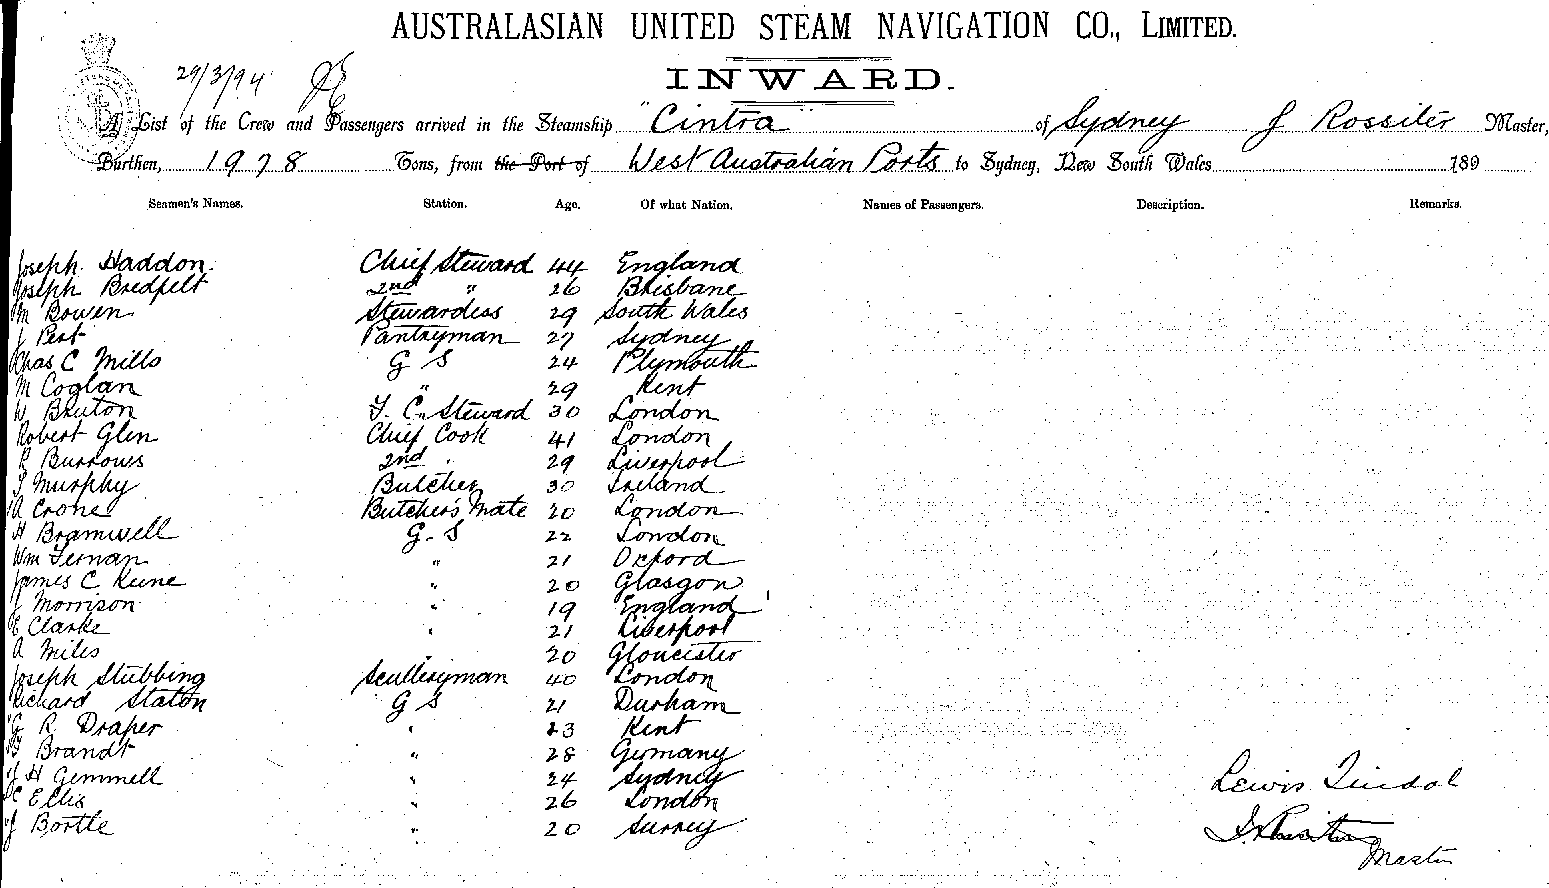 AUSTRALASIAN UNITED STEAM NAVIGATION CO., LIMITED.
INWARD.
29/3/94
A List of the Crew and Passengers arrived in the Steamship "Cintra" of Sydney J Rossiter Master,
Burthen, 1978 Tons, from the Port of West Australian Ports to Sydney, New South Wales 189
Seamen's Names. Station. Age. Of what Nation. Names of Passengers. Description. Remarks.
Joseph Haddon. Chief Steward 44 England
Joseph Bredfelt 2nd " 26 Brisbane
M Bowen Stewardess 29 South Wales
J Pert Pantryman 27 Sydney
Chas C Mills G S 24 Plymouth
M Coglan " 29 Kent
W Bruton F. C. Steward 30 London
Robert Glen Chief Cook 41 London
R Burrows 2nd " 29 Liverpool
Murphy Butcher 30 Ireland
A Crone Butcher's Mate 20 London
H Bramwell G. S 22 London
Wm Fernan " 21 Oxford
James C Keene " 20 Glasgow
J Morrison " 19 England
E Clarke " 21 Liverpool
A Miles 20 Gloucester
Joseph Stubbing Sculleryman 40 London
Richard Staton G S 21 Durham
G R Draper " 23 Kent
Brandt " 28 Germany
J H Gemmell " 24 Sydney
C Ellis " 26 London
J Bortle " 20 Surrey
Lewis Tindal
J. Rossiter
Master